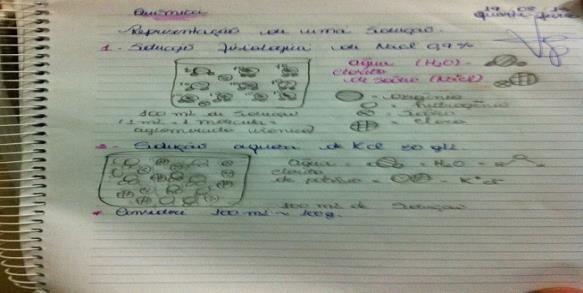 Química
quarta-feira
Representação de uma solução.
1 - Solução fisiologia de NaCl 0,9%
água (H2O) -
cloreto
de sódio (NaCl)
= oxigênio
= hidrogênio
= sódio
= cloro
100 ml de solução
1 ml = 1 molécula
aglomerado iônico
2 - Solução aquosa de KCl 30 g/L
Água = = H2O =
cloreto
de potássio = = K+Cl-
100 ml de solução
* Considere 100 ml ~ 100g.